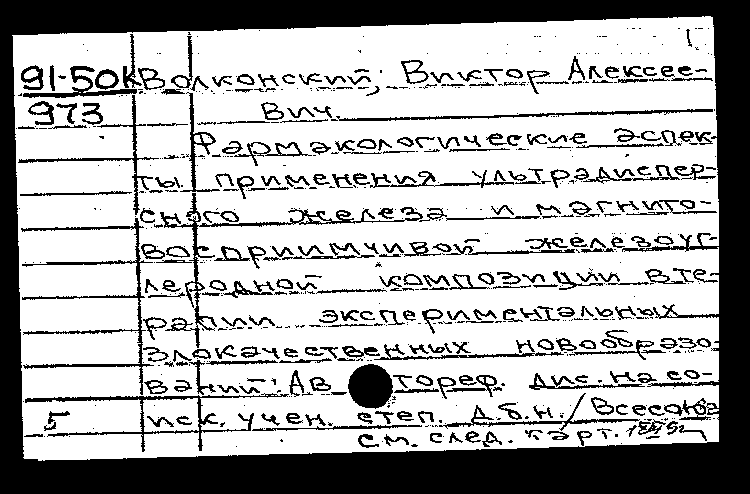 1
91-50к Волконский, Виктор Алексее-
973 вич.
Фармакологические аспек-
ты применения ультрадиспер-
сного железа и магнито-
восприимчивой железоуг-
леродной композиции в те-
рапии экспериментальных
злокачественных новообразо-
ваний: Автореф. дис. на со-
5 иск. учен. степ. д.б.н. / Всесоюз
см. след. карт.